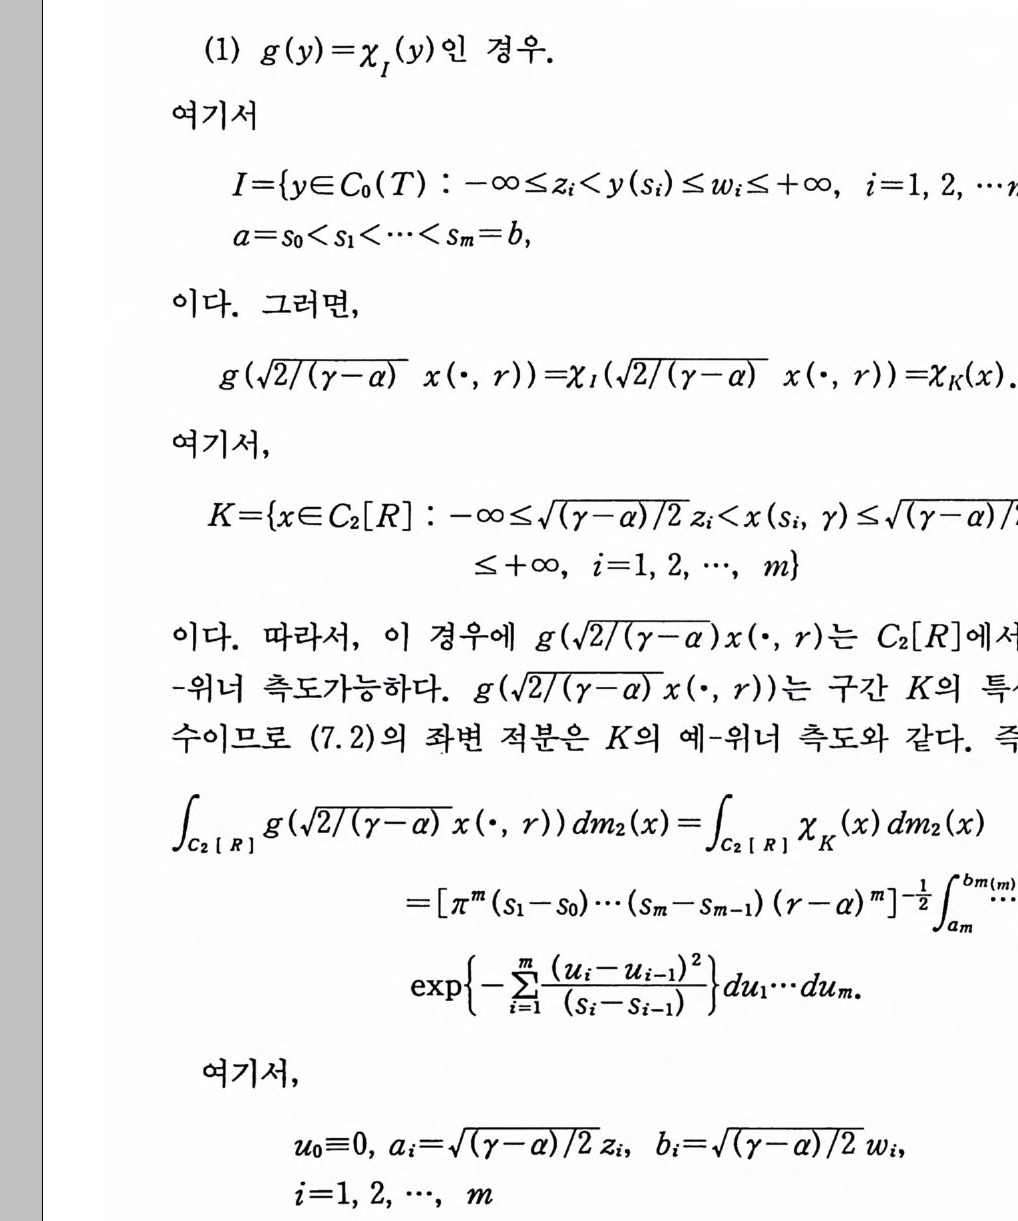 (1) g(y)=χ_I(y)인 경우.
여기서
I={y∈C₀(T) : −∞≤zᵢ<y(sᵢ)≤wᵢ≤+∞, i=1, 2, ⋯
a=s₀<s₁<⋯<sₘ=b,
이다. 그러면,
g(√2/(γ−α) x(·, r))=χ_I(√2/(γ−α) x(·, r))=χ_K(x).
여기서,
K={x∈C₂[R] : −∞≤√(γ−α)/2 zᵢ<x(sᵢ, γ)≤√(γ−α)/
≤+∞, i=1, 2, ⋯, m}
이다. 따라서, 이 경우에 g(√2/(γ−α)x(·, r)는 C₂[R]에서
-위너 측도가능하다. g(√2/(γ−α) x(·, r))는 구간 K의
수이므로 (7.2)의 좌변 적분은 K의 예-위너 측도와 같다. 즉
∫_{C₂[R]} g(√2/(γ−α) x(·, r)) dm₂(x)=∫_{C₂[R]} χ_K(x) dm₂(x)
=[πᵐ(s₁−s₀)⋯(sₘ−sₘ₋₁)(r−α)ᵐ]^{−1/2} ∫_{am}^{bm(m)} ⋯
exp{−∑_{i=1}^{m} (uᵢ−uᵢ₋₁)²/(sᵢ−sᵢ₋₁)}du₁⋯duₘ.
여기서,
u₀≡0, aᵢ=√(γ−α)/2 zᵢ, bᵢ=√(γ−α)/2 wᵢ,
i=1, 2, ⋯, m